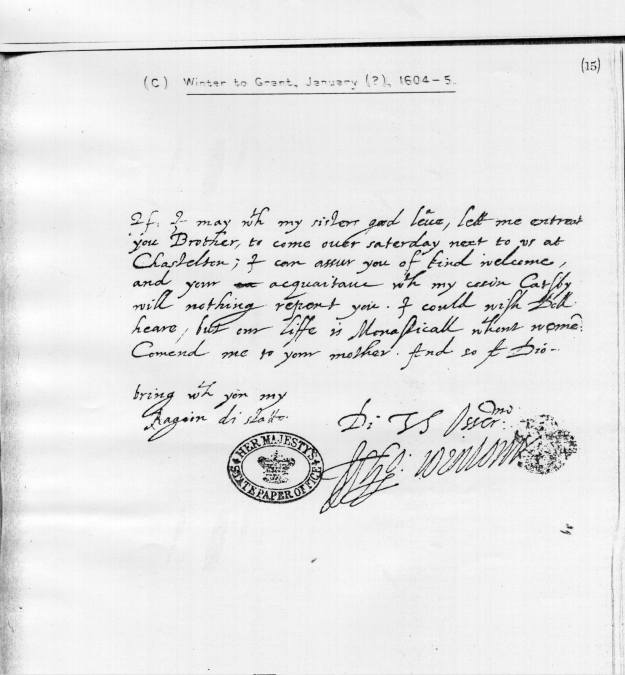 (15)
(C) Winter to Grant, January (?), 1604-5.
If I may wth my sisters good leue, lett me entreat
you Brother, to come ouer saterday next to vs at
Chastelton; I can assur you of kind welcome,
and your acquaitanc wth my cosin Catsby
will nothing repent you. I could wish Doll
heare, but our liffe is Monasticall wthout wemē.
Comend me to your mother. And so A Dio-
bring wth you my
Ragion di stato.
Di VS Osser:mo
Tho: wintour
HER MAJESTY'S
STATE PAPER OFFICE